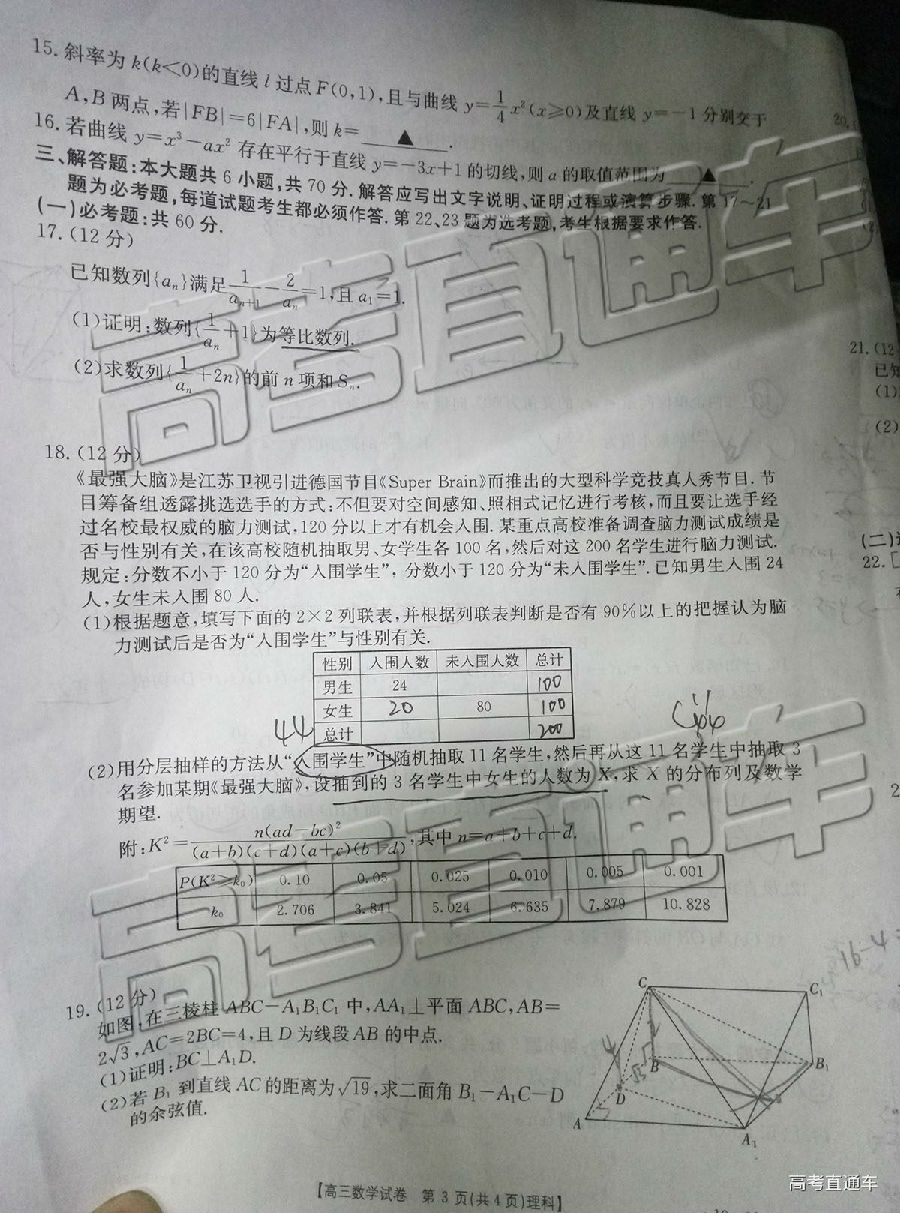 15. 斜率为 k(k<0)的直线 l 过点 F(0,1),且与曲线 y=1/4 x²(x≥0)及直线 y=−1 分别交于
A,B 两点,若|FB|=6|FA|,则 k=▲.
16. 若曲线 y=x³−ax² 存在平行于直线 y=−3x+1 的切线,则 a 的取值范围为▲.
三、解答题:本大题共 6 小题,共 70 分.解答应写出文字说明、证明过程或演算步骤.第 17~21
题为必考题,每道试题考生都必须作答.第 22、23 题为选考题,考生根据要求作答.
(一)必考题:共 60 分.
17. (12 分)
已知数列{aₙ}满足 1/aₙ₊₁ − 2/aₙ =1,且 a₁=1.
(1)证明:数列{1/aₙ +1}为等比数列.
(2)求数列{1/aₙ +2n}的前 n 项和 Sₙ.
18. (12 分)
《最强大脑》是江苏卫视引进德国节目《Super Brain》而推出的大型科学竞技真人秀节目.节
目筹备组透露挑选选手的方式:不但要对空间感知、照相式记忆进行考核,而且要让选手经
过名校最权威的脑力测试,120 分以上才有机会入围.某重点高校准备调查脑力测试成绩是
否与性别有关,在该高校随机抽取男、女学生各 100 名,然后对这 200 名学生进行脑力测试.
规定:分数不小于 120 分为“入围学生”,分数小于 120 分为“未入围学生”.已知男生入围 24
人,女生未入围 80 人.
(1)根据题意,填写下面的 2×2 列联表,并根据列联表判断是否有 90%以上的把握认为脑
力测试后是否为“入围学生”与性别有关.
性别 入围人数 未入围人数 总计
男生 24 100
女生 20 80 100
总计 200
44
(2)用分层抽样的方法从“入围学生”中随机抽取 11 名学生,然后再从这 11 名学生中抽取 3
名参加某期《最强大脑》,设抽到的 3 名学生中女生的人数为 X,求 X 的分布列及数学
期望.
附:K²= n(ad−bc)²/(a+b)(c+d)(a+c)(b+d) ,其中 n=a+b+c+d.
P(K²≥k₀) 0.10 0.05 0.025 0.010 0.005 0.001
k₀ 2.706 3.841 5.024 6.635 7.879 10.828
16-4=
19. (12 分)
如图,在三棱柱 ABC−A₁B₁C₁ 中,AA₁⊥平面 ABC,AB=
2√3,AC=2BC=4,且 D 为线段 AB 的中点.
(1)证明:BC⊥A₁D.
(2)若 B₁ 到直线 AC 的距离为√19,求二面角 B₁−A₁C−D
的余弦值.
C
C₁
B
B₁
D
A
A₁
【高三数学试卷 第 3 页(共 4 页)理科】
20.
21. (12
已知
(1)
(2)
(二)
22. [
高考直通车
高考直通车
高考直通车